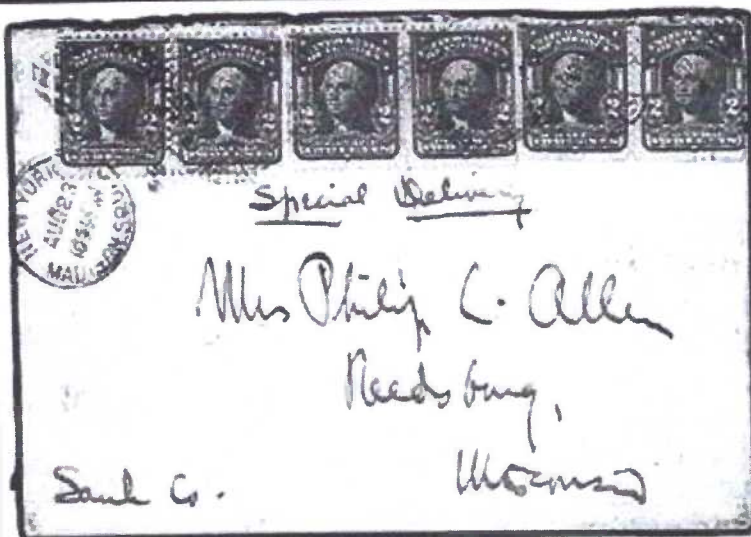 2 2 2 2 2
NEW YORK
AUG 23
MADISON SQU
Special Delivery
Mrs Philip C. Allen
Reedsburg,
Wisconsin
Sauk Co.